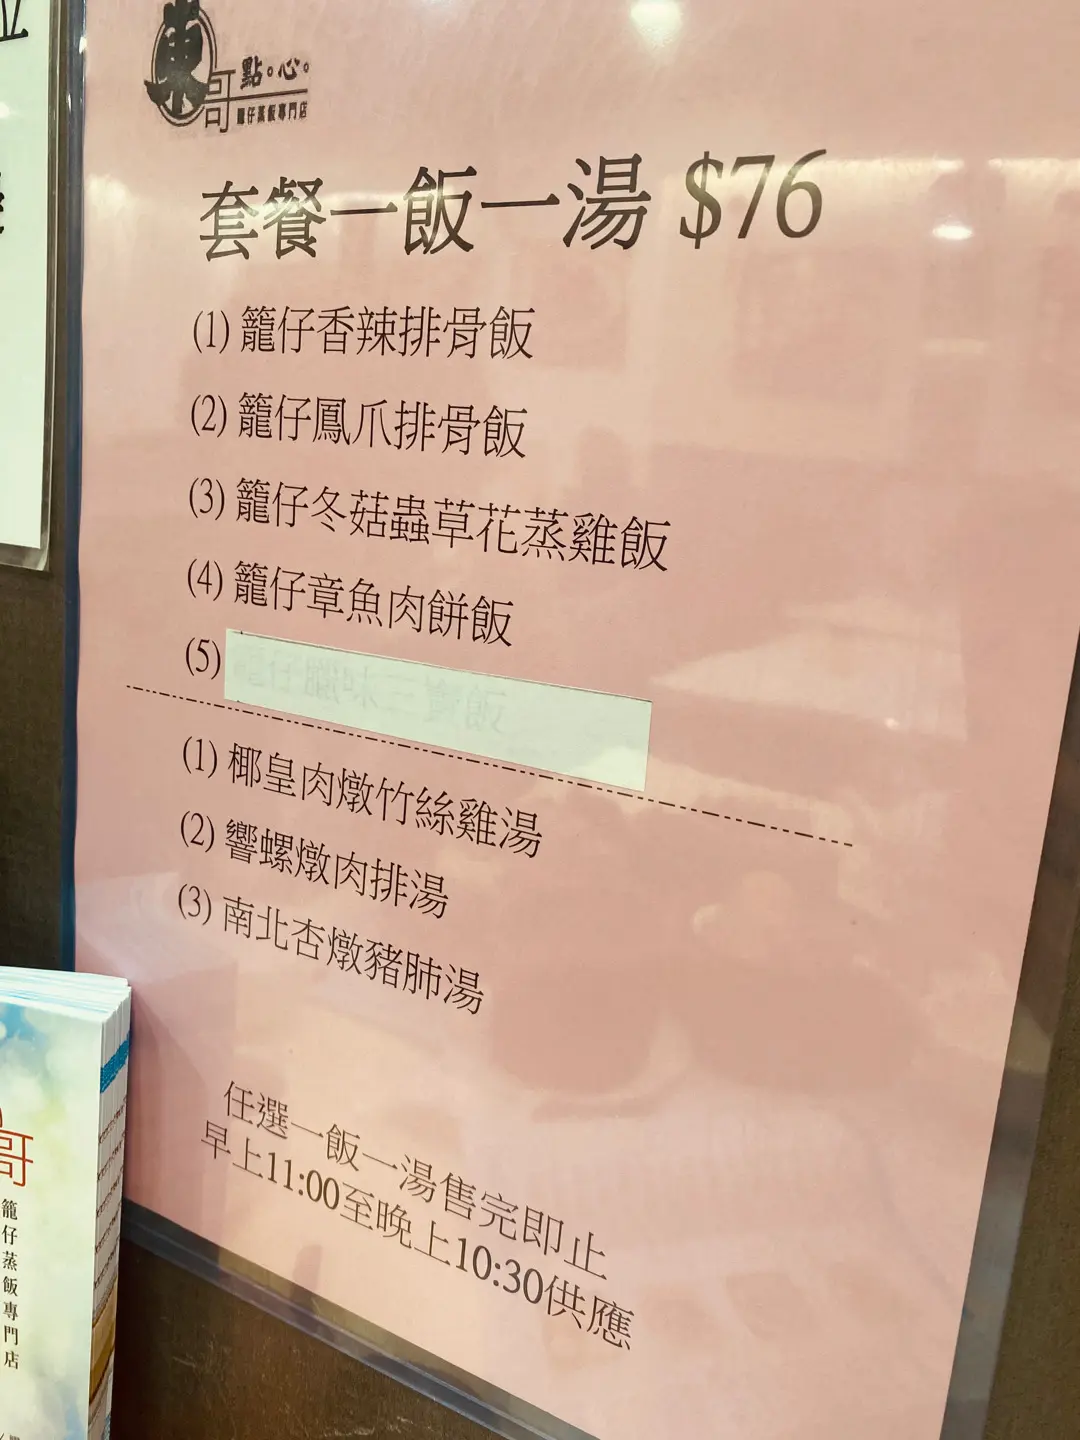 東哥點。心。
籠仔蒸飯專門店
套餐一飯一湯 $76
(1) 籠仔香辣排骨飯
(2) 籠仔鳳爪排骨飯
(3) 籠仔冬菇蟲草花蒸雞飯
(4) 籠仔章魚肉餅飯
(5)
(1) 椰皇肉燉竹絲雞湯
(2) 響螺燉肉排湯
(3) 南北杏燉豬肺湯
任選一飯一湯售完即止
早上11:00至晚上10:30供應
哥
籠仔蒸飯專門店